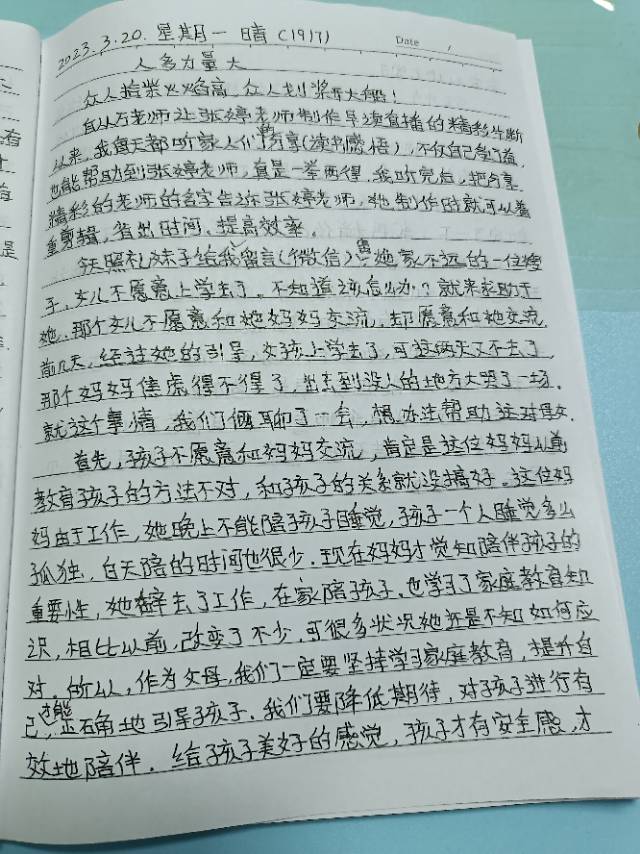 2023.3.20.星期一 晴(1917)
Date
人多力量大
众人拾柴火焰高,众人划桨开大船!
自从石老师让张婷老师制作早读直播的精彩片断
以来,我每天都听家人们的分享(读书感悟),不仅自己受了益,
也能帮助到张婷老师,真是一举两得.我听完后,把分享
精彩的老师的名字告诉张婷老师,她制作时就可以着
重剪辑,省出时间,提高效率.
今天照礼妹子给我留言(微信)她家不远的一位嫂
子,女儿不愿意上学去了,不知道该怎么办?就来求助于
她.那个女儿不愿意和她妈妈交流,却愿意和她交流.
前几天,经过她的引导,女孩上学去了,可这两天又不去了,
那个妈妈焦虑得不得了,出去到没人的地方大哭了一场.
就这个事情,我们俩聊了一会,想办法帮助这对母女.
首先,孩子不愿意和妈妈交流,肯定是这位妈妈以前
教育孩子的方法不对,和孩子的关系就没搞好.这位妈
妈由于工作,她晚上不能陪孩子睡觉,孩子一个人睡觉多么
孤独,白天陪的时间也很少.现在妈妈才觉知陪伴孩子的
重要性,她辞去了工作,在家陪孩子.也学习了家庭教育知
识,相比以前,改变了不少,可很多状况她还是不知如何应
对.所以,作为父母,我们一定要坚持学习家庭教育,提升自
己,才能正确地引导孩子.我们要降低期待,对孩子进行有
效地陪伴.给孩子美好的感觉,孩子才有安全感,才